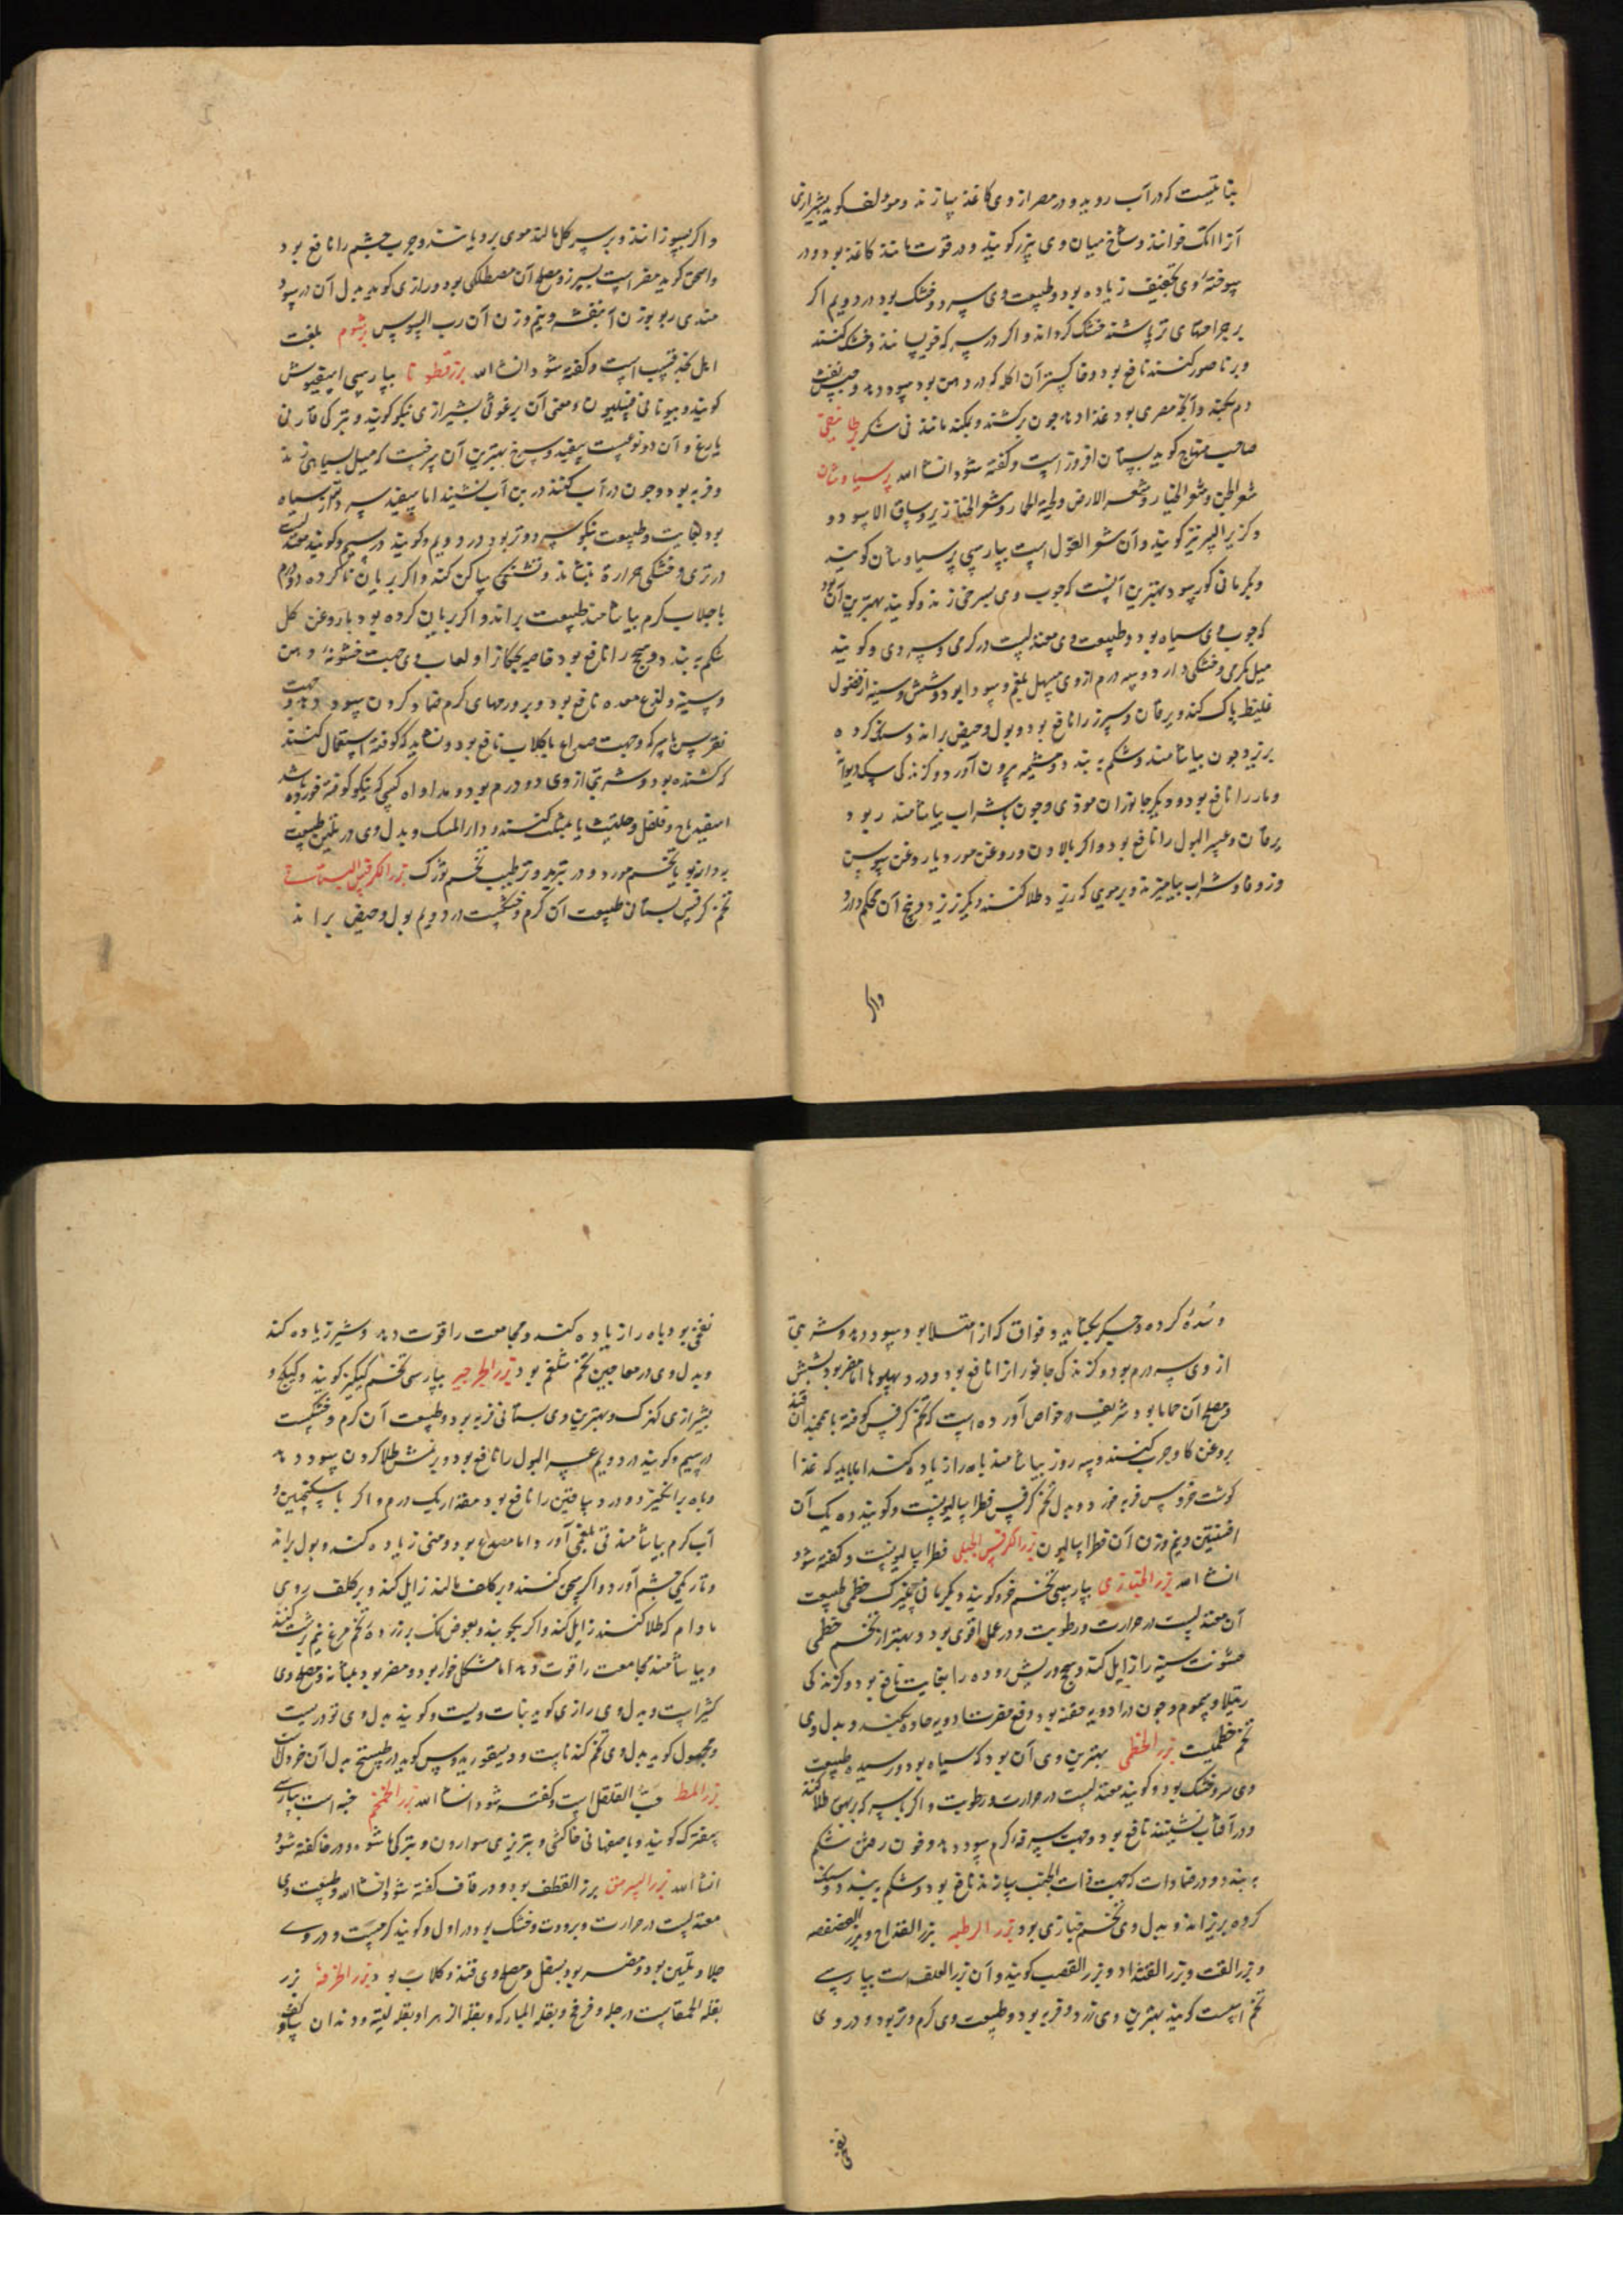 نباتیست که در آب روید و در مصر از وی کاغذ سازند و مولف گوید بشیرازی
آنرا لک خوانند و شاخ میان وی پیزر گویند و در قوت مانند کاغذ بود و در
سوخته وی تجفیف زیاده بود و طبیعت وی سرد و خشک بود در دویم اگر
بر جراحتهای تر پاشند خشک گرداند و اگر در سرکه خیسانند و خشک کنند
و بر ناصور کنند نافع بود و خاکستر آن اکله که در دهن بود سود دهد و حبس نفث
دم بکند و آنچه مصری بود غذا دهد چون برکشند و بمکند مانند نی شکر بطانیقی
صاحب منهاج گوید بستان افروز است و گفته شود انشاءالله پرسیاوشان
شعر الجن و شعر الخیار و شعر الارض و لحیة الحمار و شعر الخنازیر و ساق الاسود و
و کزبرالبیر نیز گویند و آن شعر الغول است بپارسی پرسیاوشان گویند
و بکرمانی کورسو و بهترین آنست که چوب وی بسرخی زند و گویند بهترین آن بود
که چوب وی سیاه بود و طبیعت وی معتدلست در گرمی و سردی و گویند
میل بگرمی و خشکی دارد و سه درم از وی مسهل بلغم و سودا بود و شش و سینه از فضول
غلیظ پاک کند و یرقان و سپرز را نافع بود و بول و حیض براند و سنگ گرده
بریزد و چون بیاشامند شکم ببندد و مشیمه بیرون آورد و گزندگی سگ دیوانه
و مار را نافع بود و دیگر جانوران موذی و چون با شراب بیاشامند ربو و
یرقان و عسر البول را نافع بود و اگر با لادن و روغن مورد یا روغن سوسن
و زوفا و شراب بیامیزند و بر مویی که ریزد طلا کنند دیگر نریزد و بیخ آن محکم دارد
واگر
و اگر بسوزانند و بر سر کل مالند موی برویاند و جرب چشم را نافع بود
و اسحق گوید مضر است بسپرز و مصلح آن مصطکی بود و رازی گوید بدل آن در سود
مندی ربو بوزن آن بنفشه و نیم وزن آن رب السوس برشوم بلغت
اهل نجد قسب است و گفته شود انشاءالله بزرقطونا بپارسی اسبغوش
گویند و بیونانی فسلیون و معنی آن برغوثی بشیرازی بنگو گویند و بترکی قارنی
یارغ و آن دو نوعست سفید و سرخ بهترین آن سرخست که میل بسیاهی زند
و فربه بود و چون در آب کنند در بن آب نشیند اما سفید سرد و تر سیاه
بود بغایت و طبیعت بنگو سرد و تر بود در دویم و گویند در سیم و گویند معتدلست
در تری و خشکی حرارة بنشاند و تشنگی ساکن کند و اگر بریان ناکرده دو درم
با جلاب گرم بیاشامند طبیعت براند و اگر بریان کرده بود با روغن گل
شکم ببندد و سحج را نافع بود خاصه کودکانرا و لعاب وی جهت خشونة دهن
و سینه و لذع معده نافع بود و بر ورمهای گرم ضماد کردن سود دهد و جهت
نقرس با سرکه و جهت صداع با گلاب نافع بود و نشاید که کوفته استعمال کنند
که کشنده بود و شربتی از وی دو درم بود و مداوای کسی که بنگو کوفته خورده باشد
اسفیدباج و فلفل و حلتیث یا بمثلث کنند و دار المسک و بدل وی در تلیین طبیعت
بهدانه بو یا تخم مورد و در تبرید و ترطیب تخم تورک بزرالکرفس البستانی
تخم کرفس بستان طبیعت آن گرم و خشکست در دویم بول و حیض براند
و سُدّه گرده و جگر بگشاید و فواق که از امتلا بود سود دهد و شربتی
از وی سه درم بود و گزندگی جانورانرا نافع بود و درد پهلوها اما مضر بود بشش
و مصلح آن حاما بود و شریف در خواص آورده است که تخم کرفس کوفته با همچندان قند
بروغن گاو چرب کنند و سه روز بیاشامند باه را زیاده کند اما باید که غذا
گوشت خروس فربه خورد و بدل تخم کرفس فطراسالیونست و گویند ده یک آن
افسنتین و نیم وزن آن فطراسالیون بزرالکرفس الجبلی فطراسالیونست و گفته شود
انشاءالله بزرالخبازی بپارسی تخم خرو گویند و بکرمانی خطمی طبیعت
آن معتدلست در حرارت و رطوبت و در عمل اقوی بود و بهتر از تخم خطمی
خشونت سینه را زایل کند و سحج و ریش روده را بغایت نافع بود و گزندگی
رتیلا و سموم و چون در ادویه حقنه بود دفع مضرت ادویه حاده بکند و بدل وی
تخم خطمیست بزر الخطمی بهترین وی آن بود که سیاه بود و رسیده طبیعت
وی سرد و خشک بود و گویند معتدلست در حرارت و رطوبت و اگر با سرکه بر بهق طلا کنند
و در آفتاب نشینند نافع بود و جهت سرفه گرم سود دهد و خون رفتن شکم
ببندد و در ضمادات که جهت ذات الجنب سازند نافع بود و شکم ببندد و سنگ
گرده بریزاند و بدل وی تخم خبازی بود بزر الرطبه بزر الفداح و بزر الفصفصه
و بزر القت و بزر القثداد و بزر القصب گویند و آن بزر العلف است بپارسی
تخم اسپست گویند بهترین وی زرد و فربه بود و طبیعت وی گرم و تر بود و در وی
نفخی
نفخی بود باه را زیاده کند و مجامعت را قوت دهد و شیر زیاده کند
و بدل وی در معاجین تخم شلغم بود بزر الجرجیر بپارسی تخم کیکیز گویند و کیکج و
بشیرازی کهزک و بهترین وی بستانی فربه بود و طبیعت آن گرم و خشکست
در سیم و گویند در دویم عسر البول را نافع بود و بر نمش طلا کردن سود دهد
و باه برانگیزد و درد ساقین را نافع بود مقدار یک درم و اگر با سکنجبین و
آب گرم بیاشامند قی بلغمی آورد اما مصدع بود و منی زیاده کند و بول براند
و تاریکی چشم آورد و اگر سحق کنند و بر کلف مالند زایل کند و بر کلف روی
مادام که طلا کنند زایل کند و اگر بجوبند و بعوض نمک بر زرده تخم مرغ نیم برشت کنند
و بیاشامند مجامعت را قوت دهد اما مشکل خوار بود و مضر بود بمثانه و مصلح وی
کثیراست و بدل وی رازی گوید نبات ویست و گویند بدل وی تودریست
و مجهول گوید بدل وی تخم گندناست و دیسقوریدوس گوید در طبیخ بدل آن خردل
بزر المط حبّ القلقل است و گفته شود انشاءالله بزر الخمخم خبه است بپارسی
سفترک گویند و باصفهانی خاکشی و بتبریزی سوارون و بترکی شو و در خا گفته شود
انشاءالله بزر السرمق بزر القطف بود و در قاف گفته شود انشاءالله طبیعت وی
معتدلست در حرارت و برودت و خشک بود در اول و گویند گرمست و در وی
جلا و تلیین بود و مضر بود بسفل و مصلح وی قند و گلاب بود بزر الخرفه بزر
بقله الحمقاست در جله و فرفخ و بقله المبارکه و بقله الزهرا و بقله لینه و دندان سگ